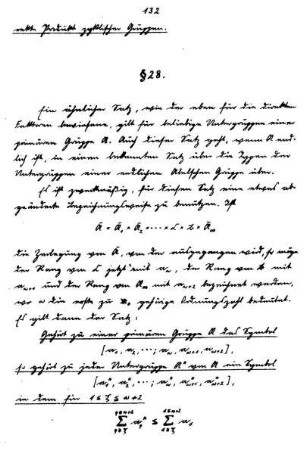 132
rekte Produkt zyklischer Gruppen.
§28.
Ein ähnlicher Satz, wie der eben für die direkten
Faktoren bewiesene, gilt für beliebige Untergruppen einer
primären Gruppe A. Auch dieser Satz geht, wenn A end-
lich ist, in einen bekannten Satz über die Typen der
Untergruppen einer endlichen Abelschen Gruppe über.
Es ist zweckmäßig, für diesen Satz eine etwas ab-
geänderte Bezeichnungsweise zu benutzen. Ist
die Zerlegung von A, von der ausgegangen wird, so möge
der Rang von L jetzt mit a_ω, der Rang von
a_{ω+1} und der Rang von A_∞ mit a_{ω+2} bezeichnet werden,
wo ω die erste zu ℵ₀ gehörige Ordnungszahl bedeutet.
Es gilt dann der Satz:
Gehört zu einer primären Gruppe A das Symbol
[a₁, a₂, ...; a_ω, a_{ω+1}, a_{ω+2}],
so gehört zu jeder Untergruppe A* von A ein Symbol
[a₁*, a₂*, ...; a_ω*, a_{ω+1}*, a_{ω+2}*],
in dem für 1 ≤ ξ ≤ ω+2